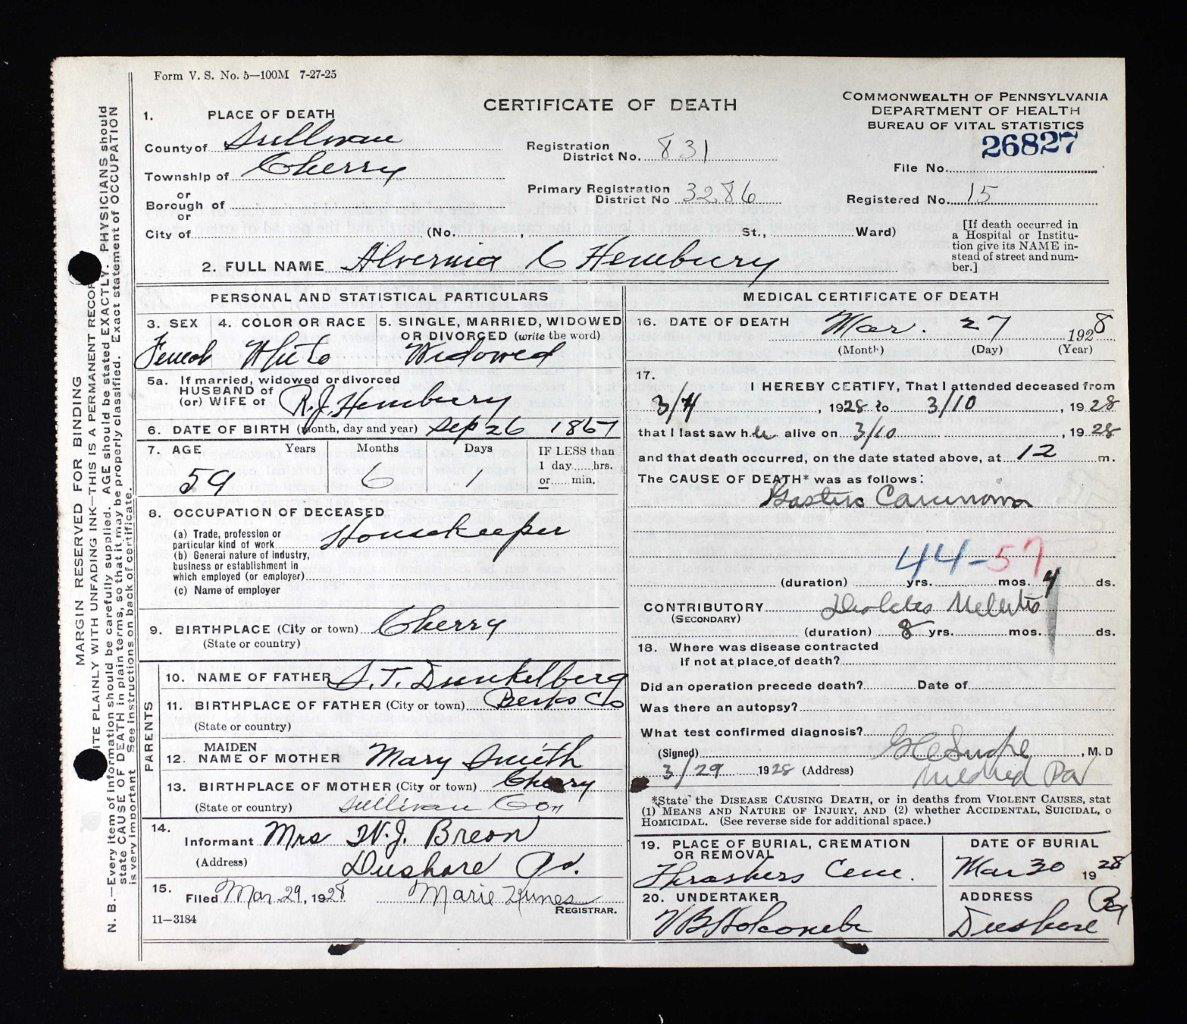 Form V. S. No. 5—100M 7-27-25
CERTIFICATE OF DEATH
COMMONWEALTH OF PENNSYLVANIA
DEPARTMENT OF HEALTH
BUREAU OF VITAL STATISTICS
26827
File No.
Registered No. 15
1. PLACE OF DEATH
County of Sullivan
Township of Cherry
or
Borough of
or
City of (No. , St., Ward)
Registration
District No. 831
Primary Registration
District No 3286
[If death occurred in
a Hospital or Institu-
tion give its NAME in-
stead of street and num-
ber.]
2. FULL NAME Alvernia C Hembury
PERSONAL AND STATISTICAL PARTICULARS
3. SEX
Femal
4. COLOR OR RACE
White
5. SINGLE, MARRIED, WIDOWED
OR DIVORCED (write the word)
Widowed
5a. If married, widowed or divorced
HUSBAND of
(or) WIFE of R.J. Hembury
6. DATE OF BIRTH (Month, day and year) Sep 26 1867
7. AGE Years Months Days
59 6 1
IF LESS than
1 day hrs.
or min.
8. OCCUPATION OF DECEASED
(a) Trade, profession or
particular kind of work Housekeeper
(b) General nature of industry,
business or establishment in
which employed (or employer)
(c) Name of employer
9. BIRTHPLACE (City or town) Cherry
(State or country)
PARENTS
10. NAME OF FATHER S. T. Dunkelberg
11. BIRTHPLACE OF FATHER (City or town) Berks Co
(State or country)
12. MAIDEN
NAME OF MOTHER Mary Smith
13. BIRTHPLACE OF MOTHER (City or town) Cherry
(State or country) Sullivan Co
14.
Informant Mrs W.J. Breon
(Address) Dushore Pa.
15.
Filed Mar 29, 1928 Marie
REGISTRAR.
11—3184
MEDICAL CERTIFICATE OF DEATH
16. DATE OF DEATH Mar. 27 1928
(Month) (Day) (Year)
17.
I HEREBY CERTIFY, That I attended deceased from
3/4 , 1928 to 3/10 , 1928
that I last saw her alive on 3/10 , 1928
and that death occurred, on the date stated above, at 12 m.
The CAUSE OF DEATH* was as follows:
Gastric Carcinoma
44-57
(duration) yrs. mos. 4 ds.
CONTRIBUTORY Diabetes Mellitus
(SECONDARY)
(duration) 8 yrs. mos. ds.
18. Where was disease contracted
if not at place of death?
Did an operation precede death? Date of
Was there an autopsy?
What test confirmed diagnosis?
(Signed) , M. D
3/29 1928 (Address) Mildred Pa
*State the DISEASE CAUSING DEATH, or in deaths from VIOLENT CAUSES, stat
(1) MEANS AND NATURE OF INJURY, and (2) whether ACCIDENTAL, SUICIDAL, o
HOMICIDAL. (See reverse side for additional space.)
19. PLACE OF BURIAL, CREMATION
OR REMOVAL
Thrashers Cem.
DATE OF BURIAL
Mar 30 1928
20. UNDERTAKER
V B Holcombe
ADDRESS
Dushore Pa
MARGIN RESERVED FOR BINDING
ITE PLAINLY WITH UNFADING INK—THIS IS A PERMANENT RECOR
N. B.—Every item of information should be carefully supplied. AGE should be stated EXACTLY. PHYSICIANS should
state CAUSE OF DEATH in plain terms, so that it may be properly classified. Exact statement of OCCUPATION
is very important. See instructions on back of certificate.